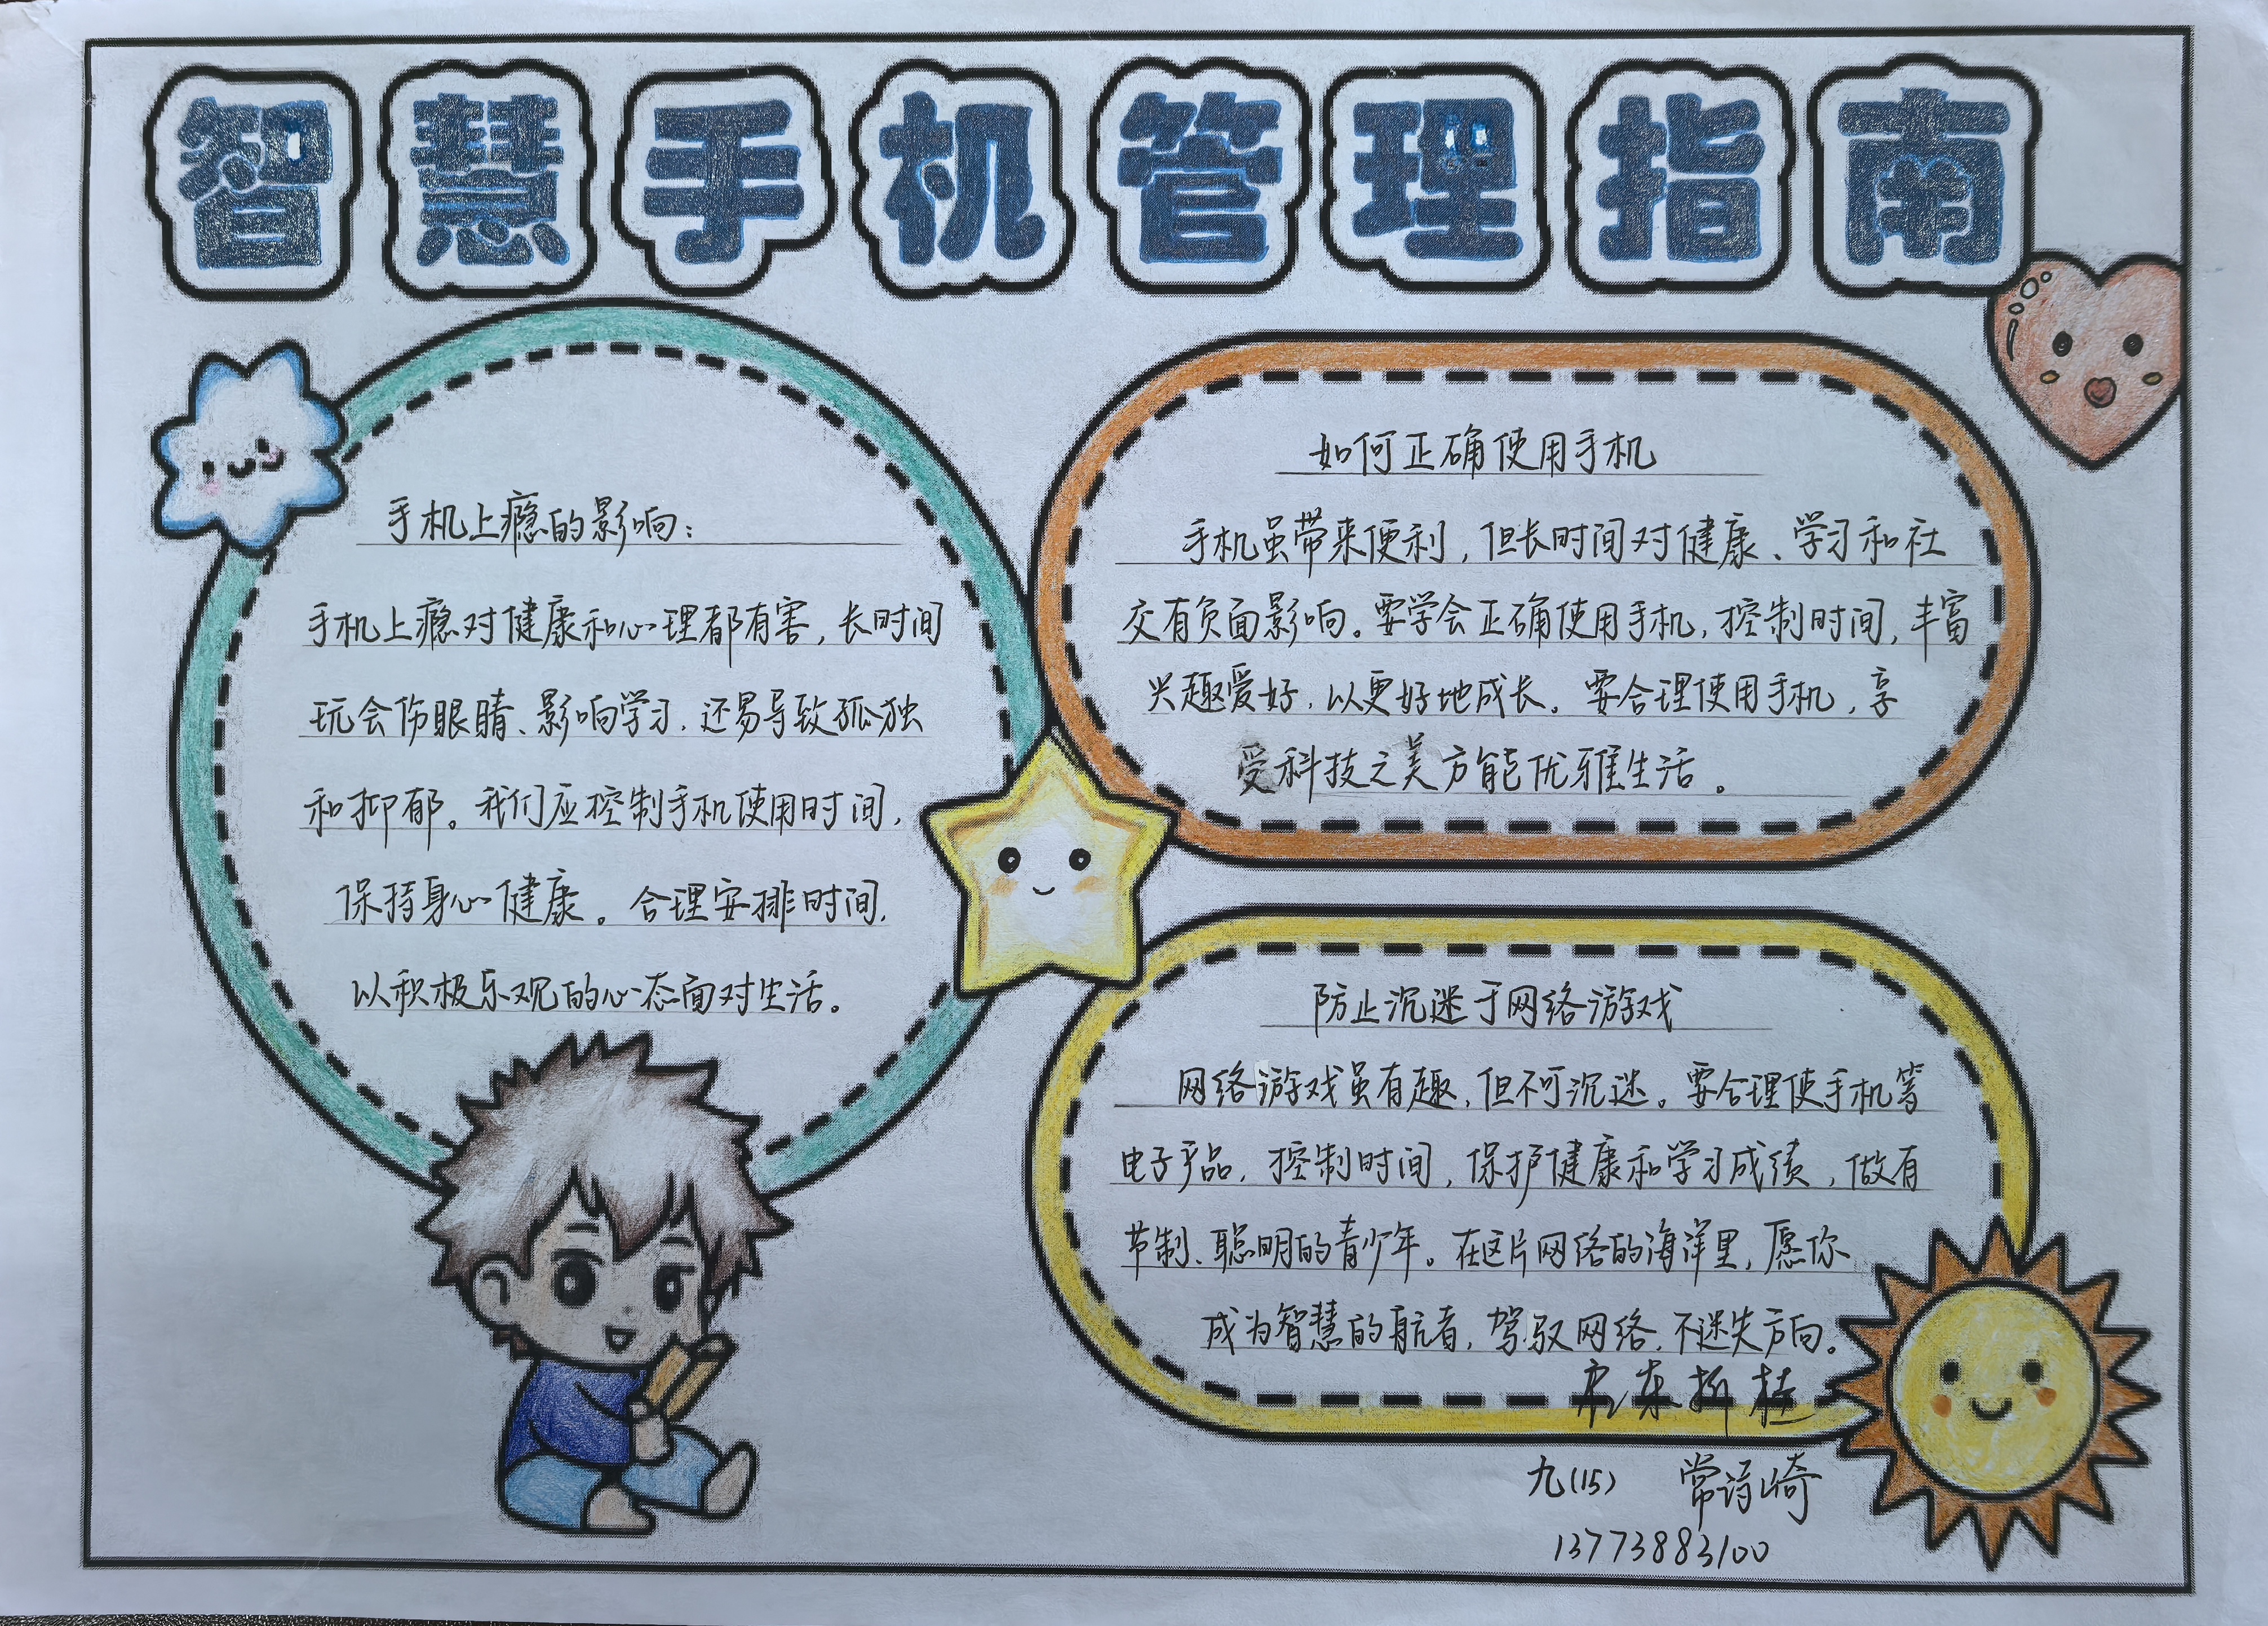 智慧手机管理指南
手机上瘾的影响：
手机上瘾对健康和心理都有害，长时间
玩会伤眼睛、影响学习，还易导致孤独
和抑郁。我们应控制手机使用时间，
保持身心健康。合理安排时间，
以积极乐观的心态面对生活。
如何正确使用手机
手机虽带来便利，但长时间对健康、学习和社
交有负面影响。要学会正确使用手机，控制时间，丰富
兴趣爱好，以更好地成长。要合理使用手机，享
受科技之美方能优雅生活。
防止沉迷于网络游戏
网络游戏虽有趣，但不可沉迷。要合理使手机等
电子产品，控制时间，保护健康和学习成绩，做有
节制、聪明的青少年。在这片网络的海洋里，愿你
成为智慧的航者，驾驭网络，不迷失方向。
九(15) 常诗崎
13773883100